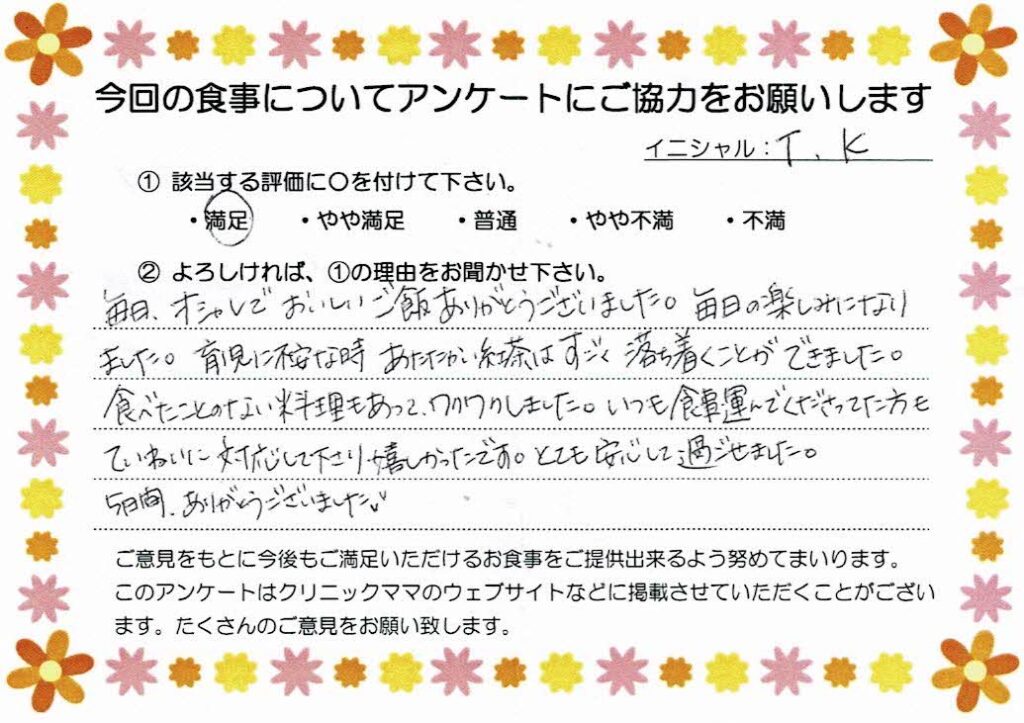 今回の食事についてアンケートにご協力をお願いします
イニシャル：T.K
① 該当する評価に〇を付けて下さい。
・満足 ・やや満足 ・普通 ・やや不満 ・不満
② よろしければ、①の理由をお聞かせ下さい。
毎日、オシャレでおいしいご飯ありがとうございました。毎日の楽しみになり
ました。育児に不安な時あたたかい紅茶はすごく落ち着くことができました。
食べたことのない料理もあって、ワクワクしました。いつも食事運んでくださってた方も
ていねいに対応して下さり嬉しかったです。とても安心して過ごせました。
5日間、ありがとうございました。
ご意見をもとに今後もご満足いただけるお食事をご提供出来るよう努めてまいります。
このアンケートはクリニックママのウェブサイトなどに掲載させていただくことがござい
ます。たくさんのご意見をお願い致します。